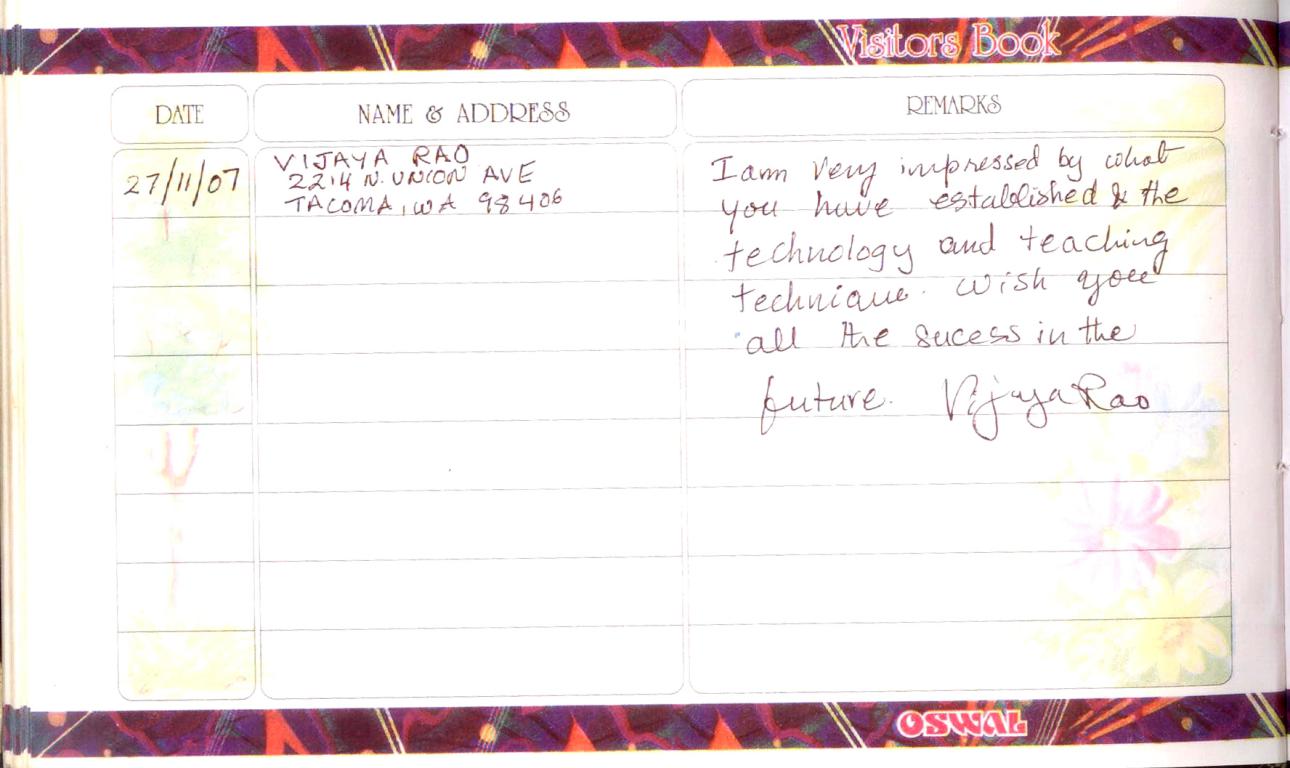 Visitors Book
DATE
NAME & ADDRESS
REMARKS
27/11/07
VIJAYA RAO
2214 N. UNION AVE
TACOMA, WA 98406
I am very impressed by what
you have established & the
technology and teaching
technique. Wish you
all the sucess in the
future. Vijaya Rao
OSWAL